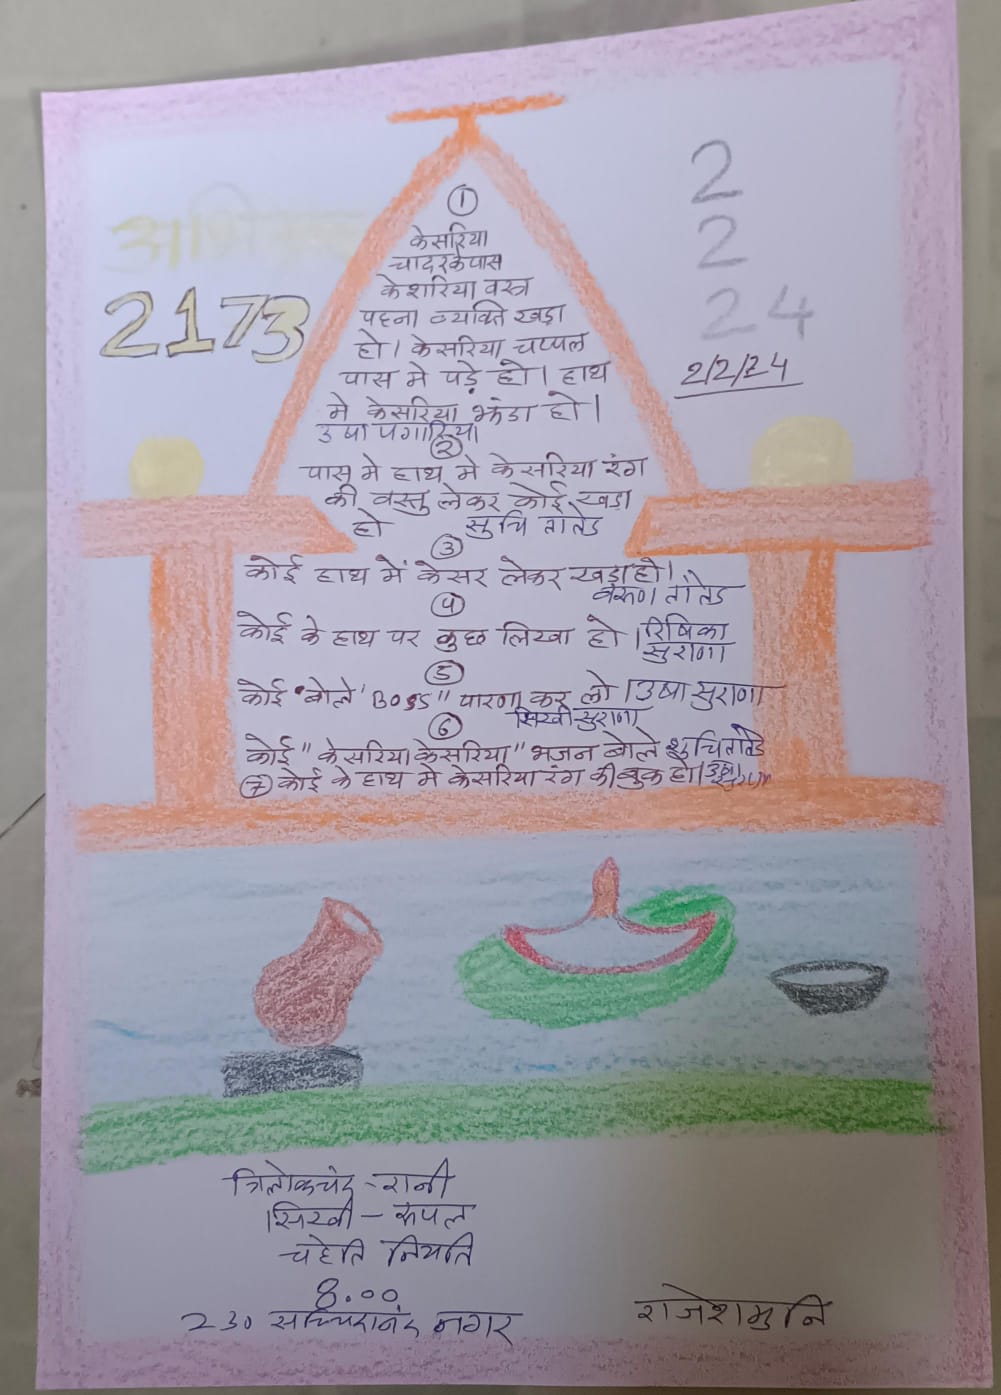 अभिग्रह
2173
2
2
24
2/2/24
①
केसरिया
चादरकेपास
केशरिया वस्त्र
पहना व्यक्ति खड़ा
हो। केसरिया चप्पल
पास मे पड़े हो। हाथ
मे केसरिया झंडा हो।
उषा पगारिया
②
पास मे हाथ मे केसरिया रंग
की वस्तु लेकर कोई खड़ा
हो सुचि तातेड
③
कोई हाथ में केसर लेकर खड़ा हो।
वरुण तातेड
④
कोई के हाथ पर कुछ लिखा हो। रिषिका
सुराणा
⑤
कोई "बोले 'BOSS" पारणा कर लो। उषा सुराणा
सिखी सुराणा
⑥
कोई "केसरिया केसरिया" भजन बोले सुचि तातेड
⑦ कोई के हाथ मे केसरिया रंग की बुक हो।
त्रिलोकचंद - रानी
सिखी - रुपल
चहेति नियति
8.00
230 सच्चिदानंद नगर
राजेशमुनि